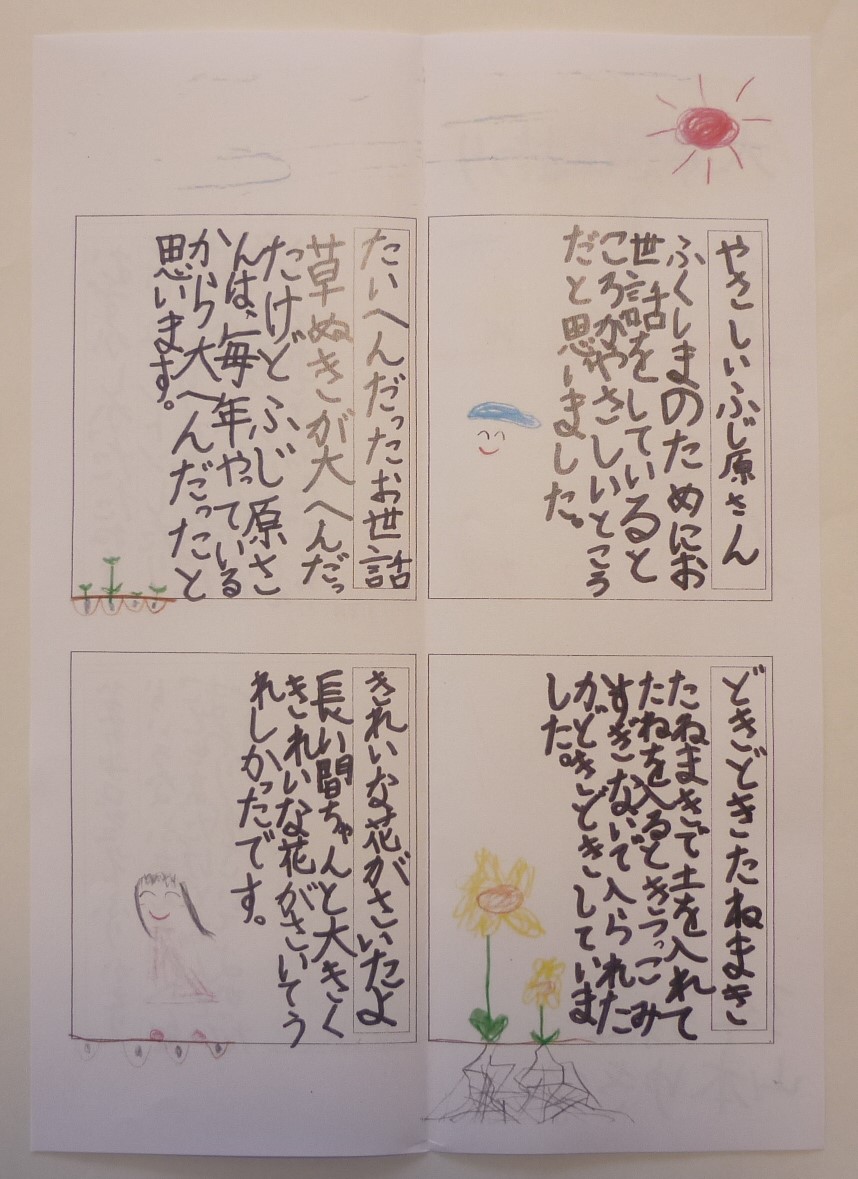 やさしいふじ原さん
ふくしまのためにお
世話をしていると
ころがやさしいとこう
だと思いました。
どきどきたねまき
たねまきで土を入れて
たねを入るときつっこみ
すぎないで入られた
かどきどきしていま
した。
たいへんだったお世話
草ぬきが大へんだっ
たけどふじ原さ
んは、毎年やっている
から大へんだったと
思います。
きれいな花がさいたよ
長い間ちゃんと大きく
きれいな花がさいてう
れしかったです。